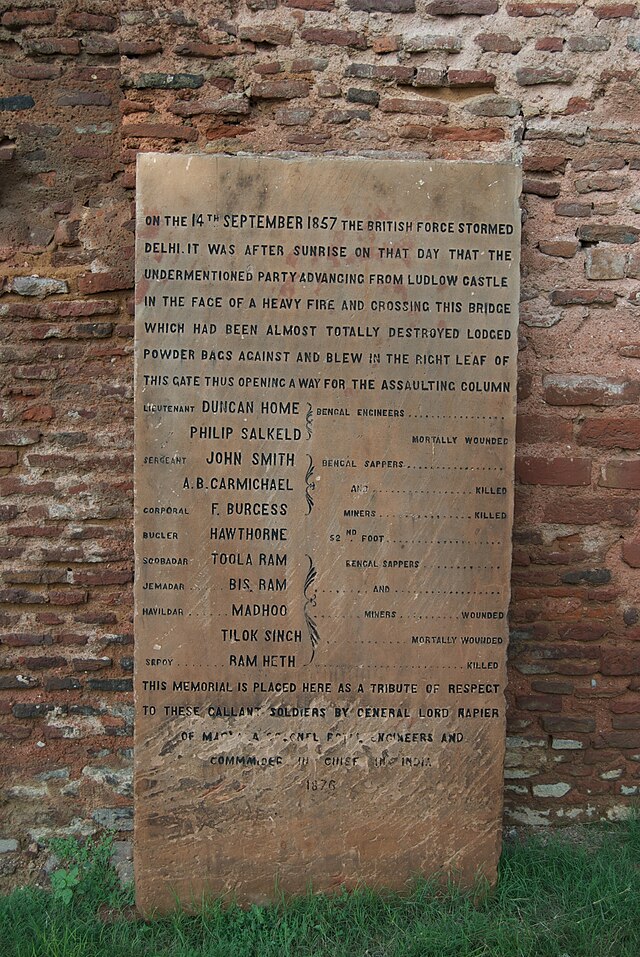 ON THE 14TH SEPTEMBER 1857 THE BRITISH FORCE STORMED
DELHI. IT WAS AFTER SUNRISE ON THAT DAY THAT THE
UNDERMENTIONED PARTY ADVANCING FROM LUDLOW CASTLE
IN THE FACE OF A HEAVY FIRE AND CROSSING THIS BRIDGE
WHICH HAD BEEN ALMOST TOTALLY DESTROYED LODGED
POWDER BAGS AGAINST AND BLEW IN THE RIGHT LEAF OF
THIS GATE THUS OPENING A WAY FOR THE ASSAULTING COLUMN
LIEUTENANT DUNCAN HOME BENGAL ENGINEERS
PHILIP SALKELD MORTALLY WOUNDED
SERGEANT JOHN SMITH BENGAL SAPPERS
A.B. CARMICHAEL AND KILLED
CORPORAL F. BURGESS MINERS KILLED
BUGLER HAWTHORNE 52ND FOOT
SOOBADAR TOOLA RAM BENGAL SAPPERS
JEMADAR BIS RAM AND
HAVILDAR MADHOO MINERS WOUNDED
TILOK SINGH MORTALLY WOUNDED
SEPOY RAM HETH KILLED
THIS MEMORIAL IS PLACED HERE AS A TRIBUTE OF RESPECT
TO THESE GALLANT SOLDIERS BY GENERAL LORD NAPIER
OF A COLONEL ROYAL ENGINEERS AND
IN CHIEF IN INDIA
1876